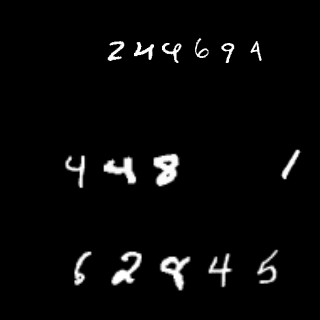 244694
448 1
62845